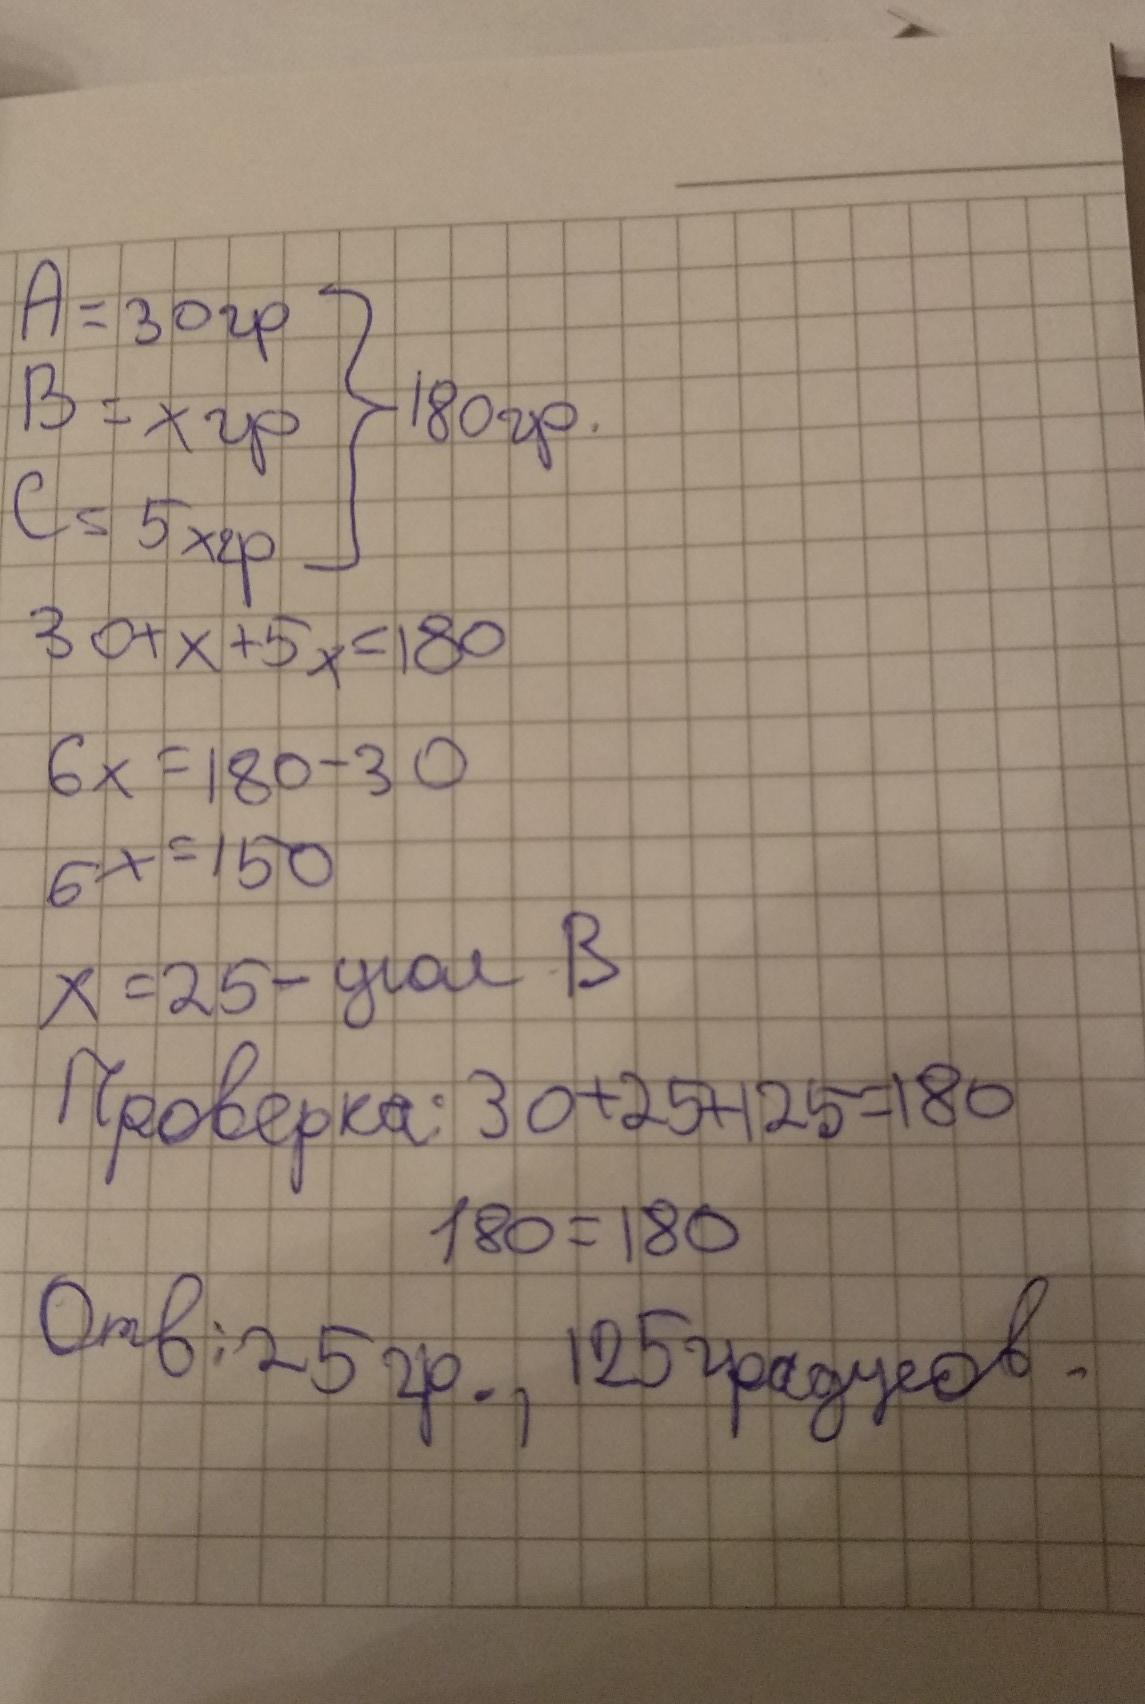 A = 30 гр
B = x гр
C = 5x гр
180 гр.
30 + x + 5x = 180
6x = 180 - 30
6x = 150
x = 25 - угол B
Проверка: 30 + 25 + 125 = 180
180 = 180
Отв: 25 гр., 125 градусов.